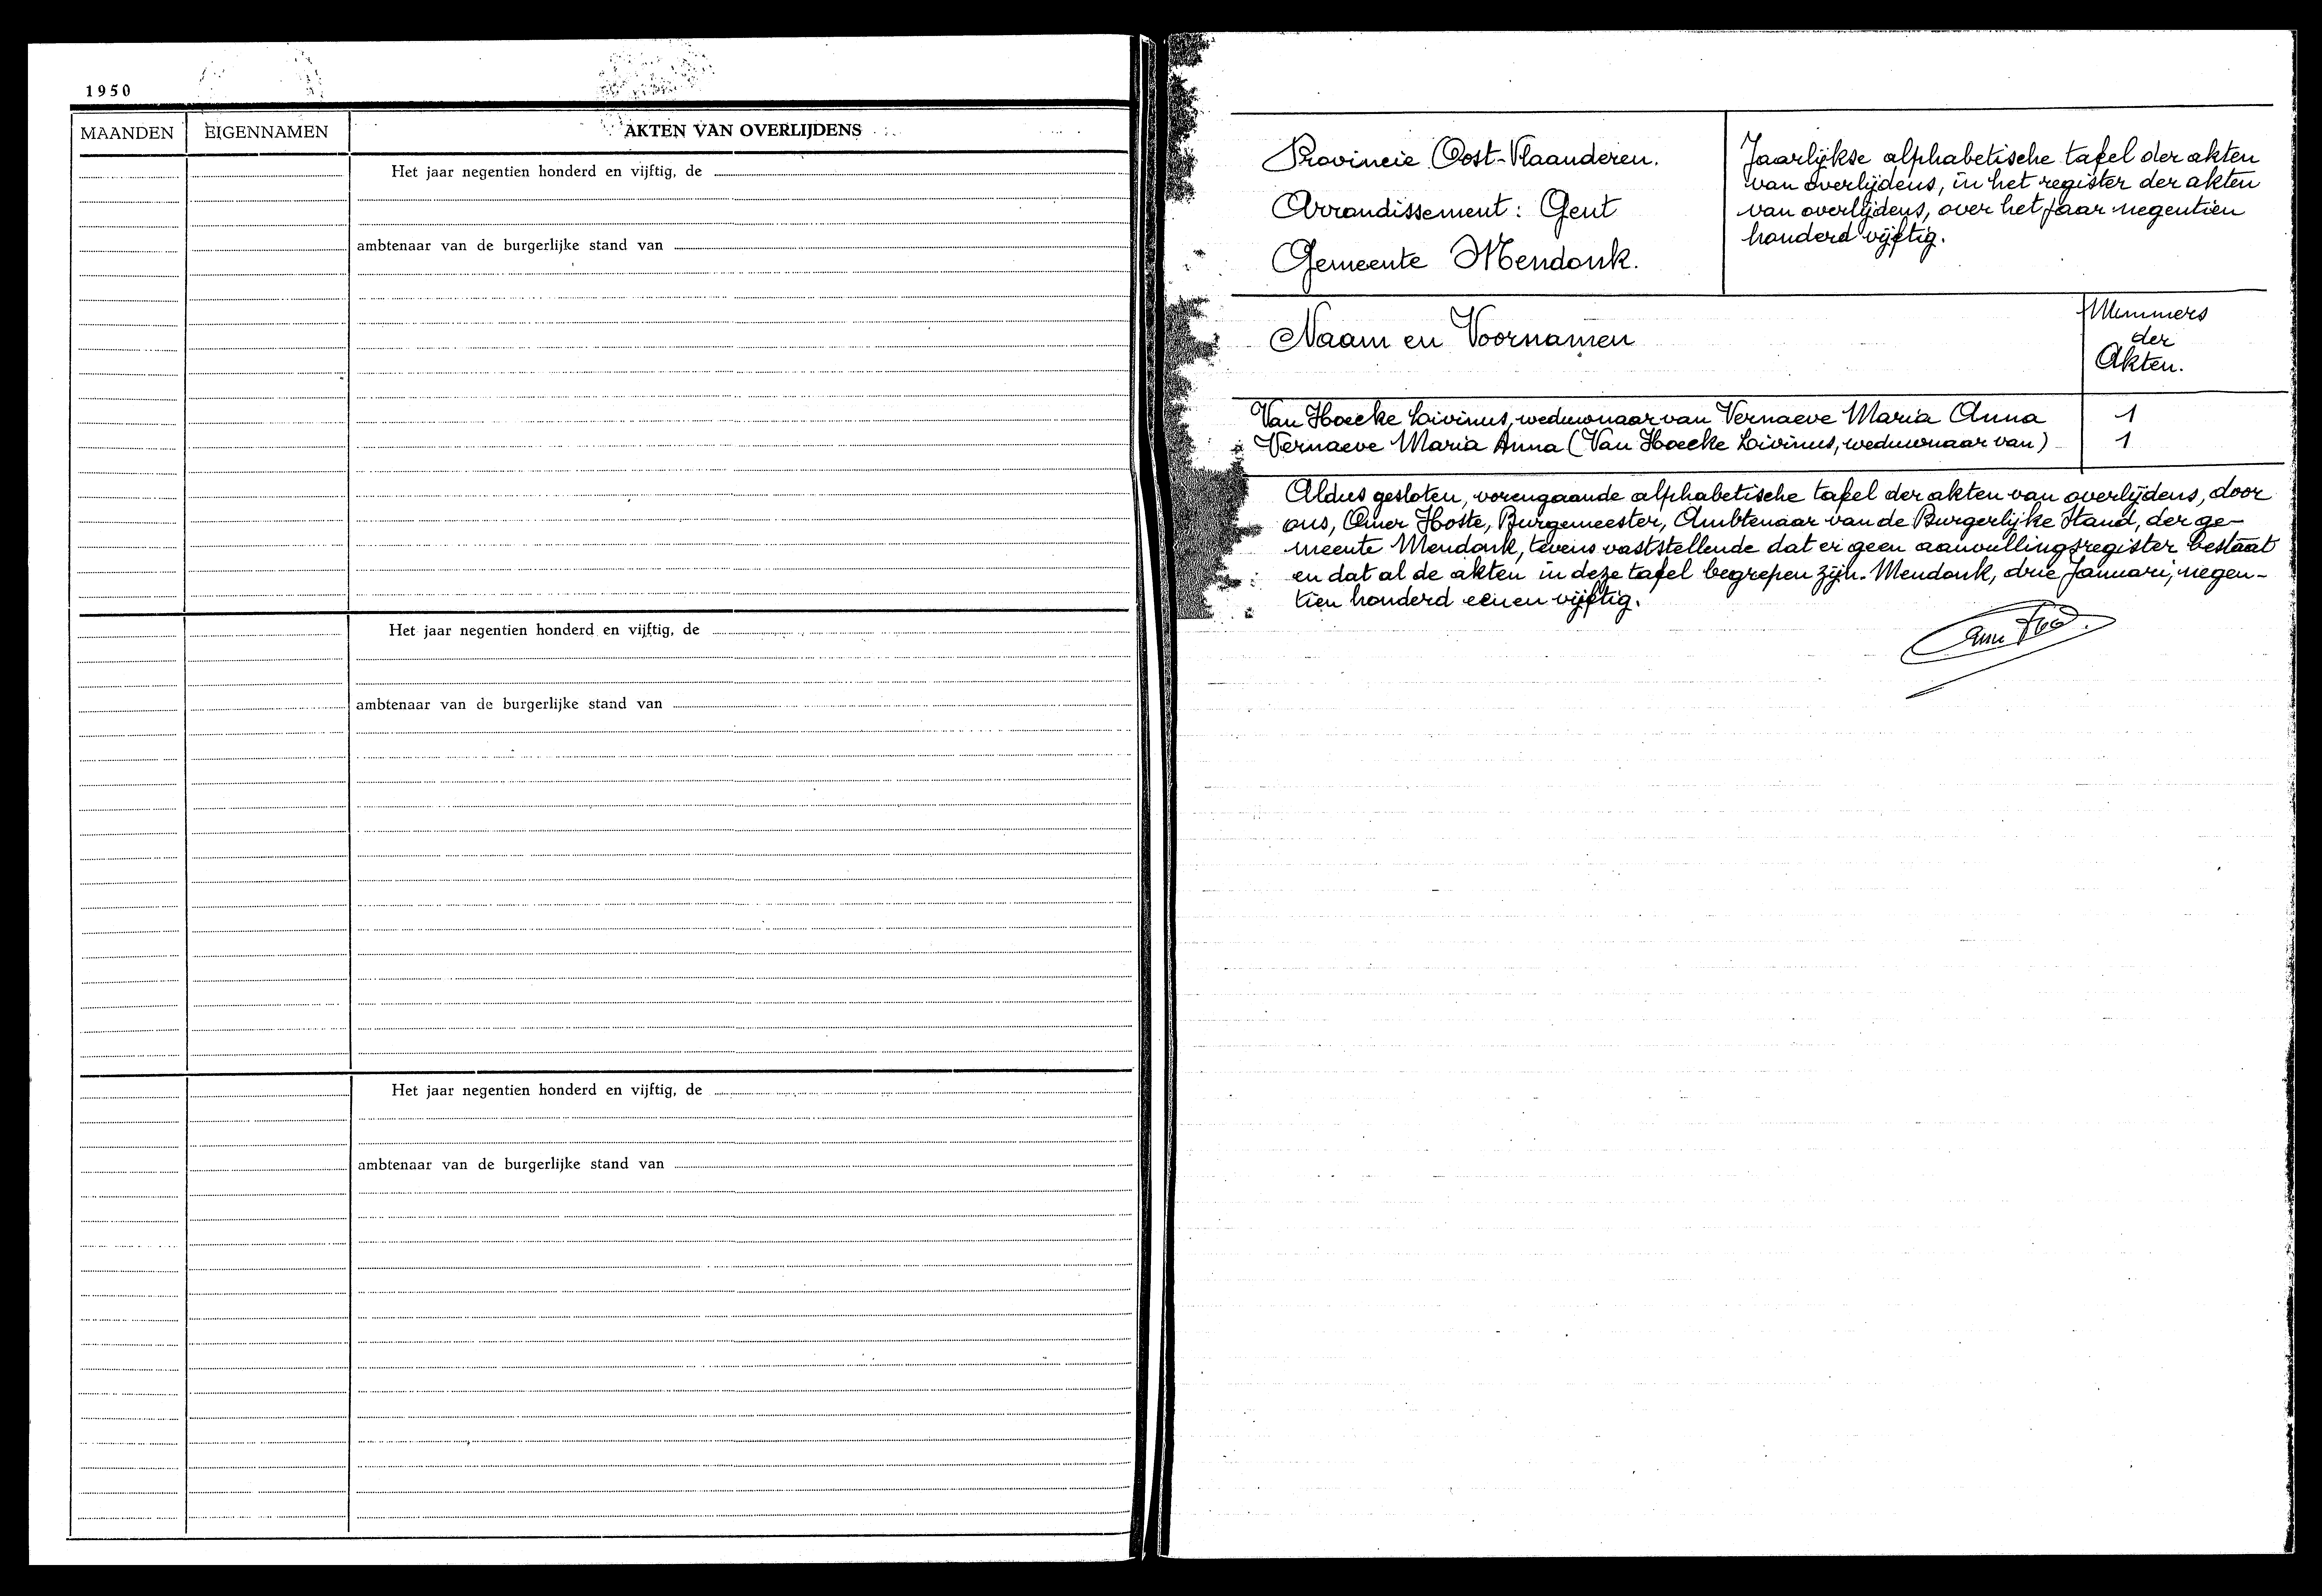 1950
MAANDEN EIGENNAMEN AKTEN VAN OVERLIJDENS
Het jaar negentien honderd en vijftig, de
ambtenaar van de burgerlijke stand van
Het jaar negentien honderd en vijftig, de
ambtenaar van de burgerlijke stand van
Het jaar negentien honderd en vijftig, de
ambtenaar van de burgerlijke stand van
Provincie Oost-Vlaanderen.
Arrondissement: Gent
Gemeente Mendonk.
Jaarlijkse alphabetische tafel der akten
van overlijdens, in het register der akten
van overlijdens, over het jaar negentien
honderd vijftig.
Naam en Voornamen
Nummers
der
Akten.
Van Hoecke Livinus, weduwnaar van Vernaeve Maria Anna 1
Vernaeve Maria Anna (Van Hoecke Livinus, weduwnaar van) 1
Aldus gesloten, vorengaande alphabetische tafel der akten van overlijdens, door
ons, Omer Hoste, Burgemeester, Ambtenaar van de Burgerlijke Stand, der ge-
meente Mendonk, tevens vaststellende dat er geen aanvullingsregister bestaat
en dat al de akten in deze tafel begrepen zijn. Mendonk, drie Januari, negen-
tien honderd eenen vijftig.